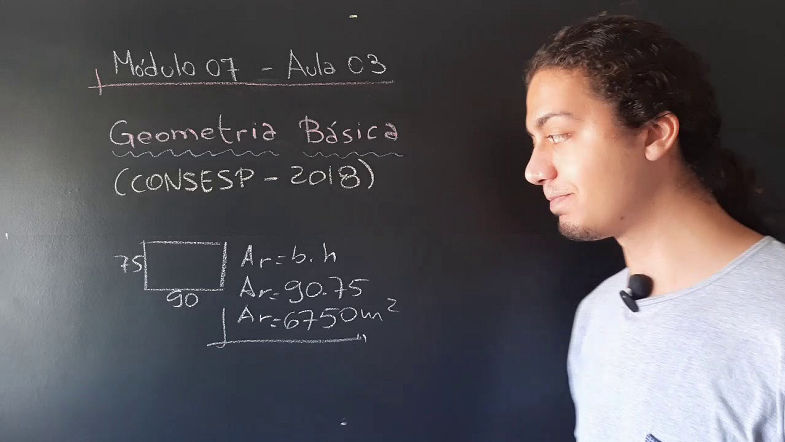 Módulo 07 - Aula 03
Geometria Básica
(CONSESP - 2018)
75
90
Ar = b.h
Ar = 90.75
Ar = 6750m²